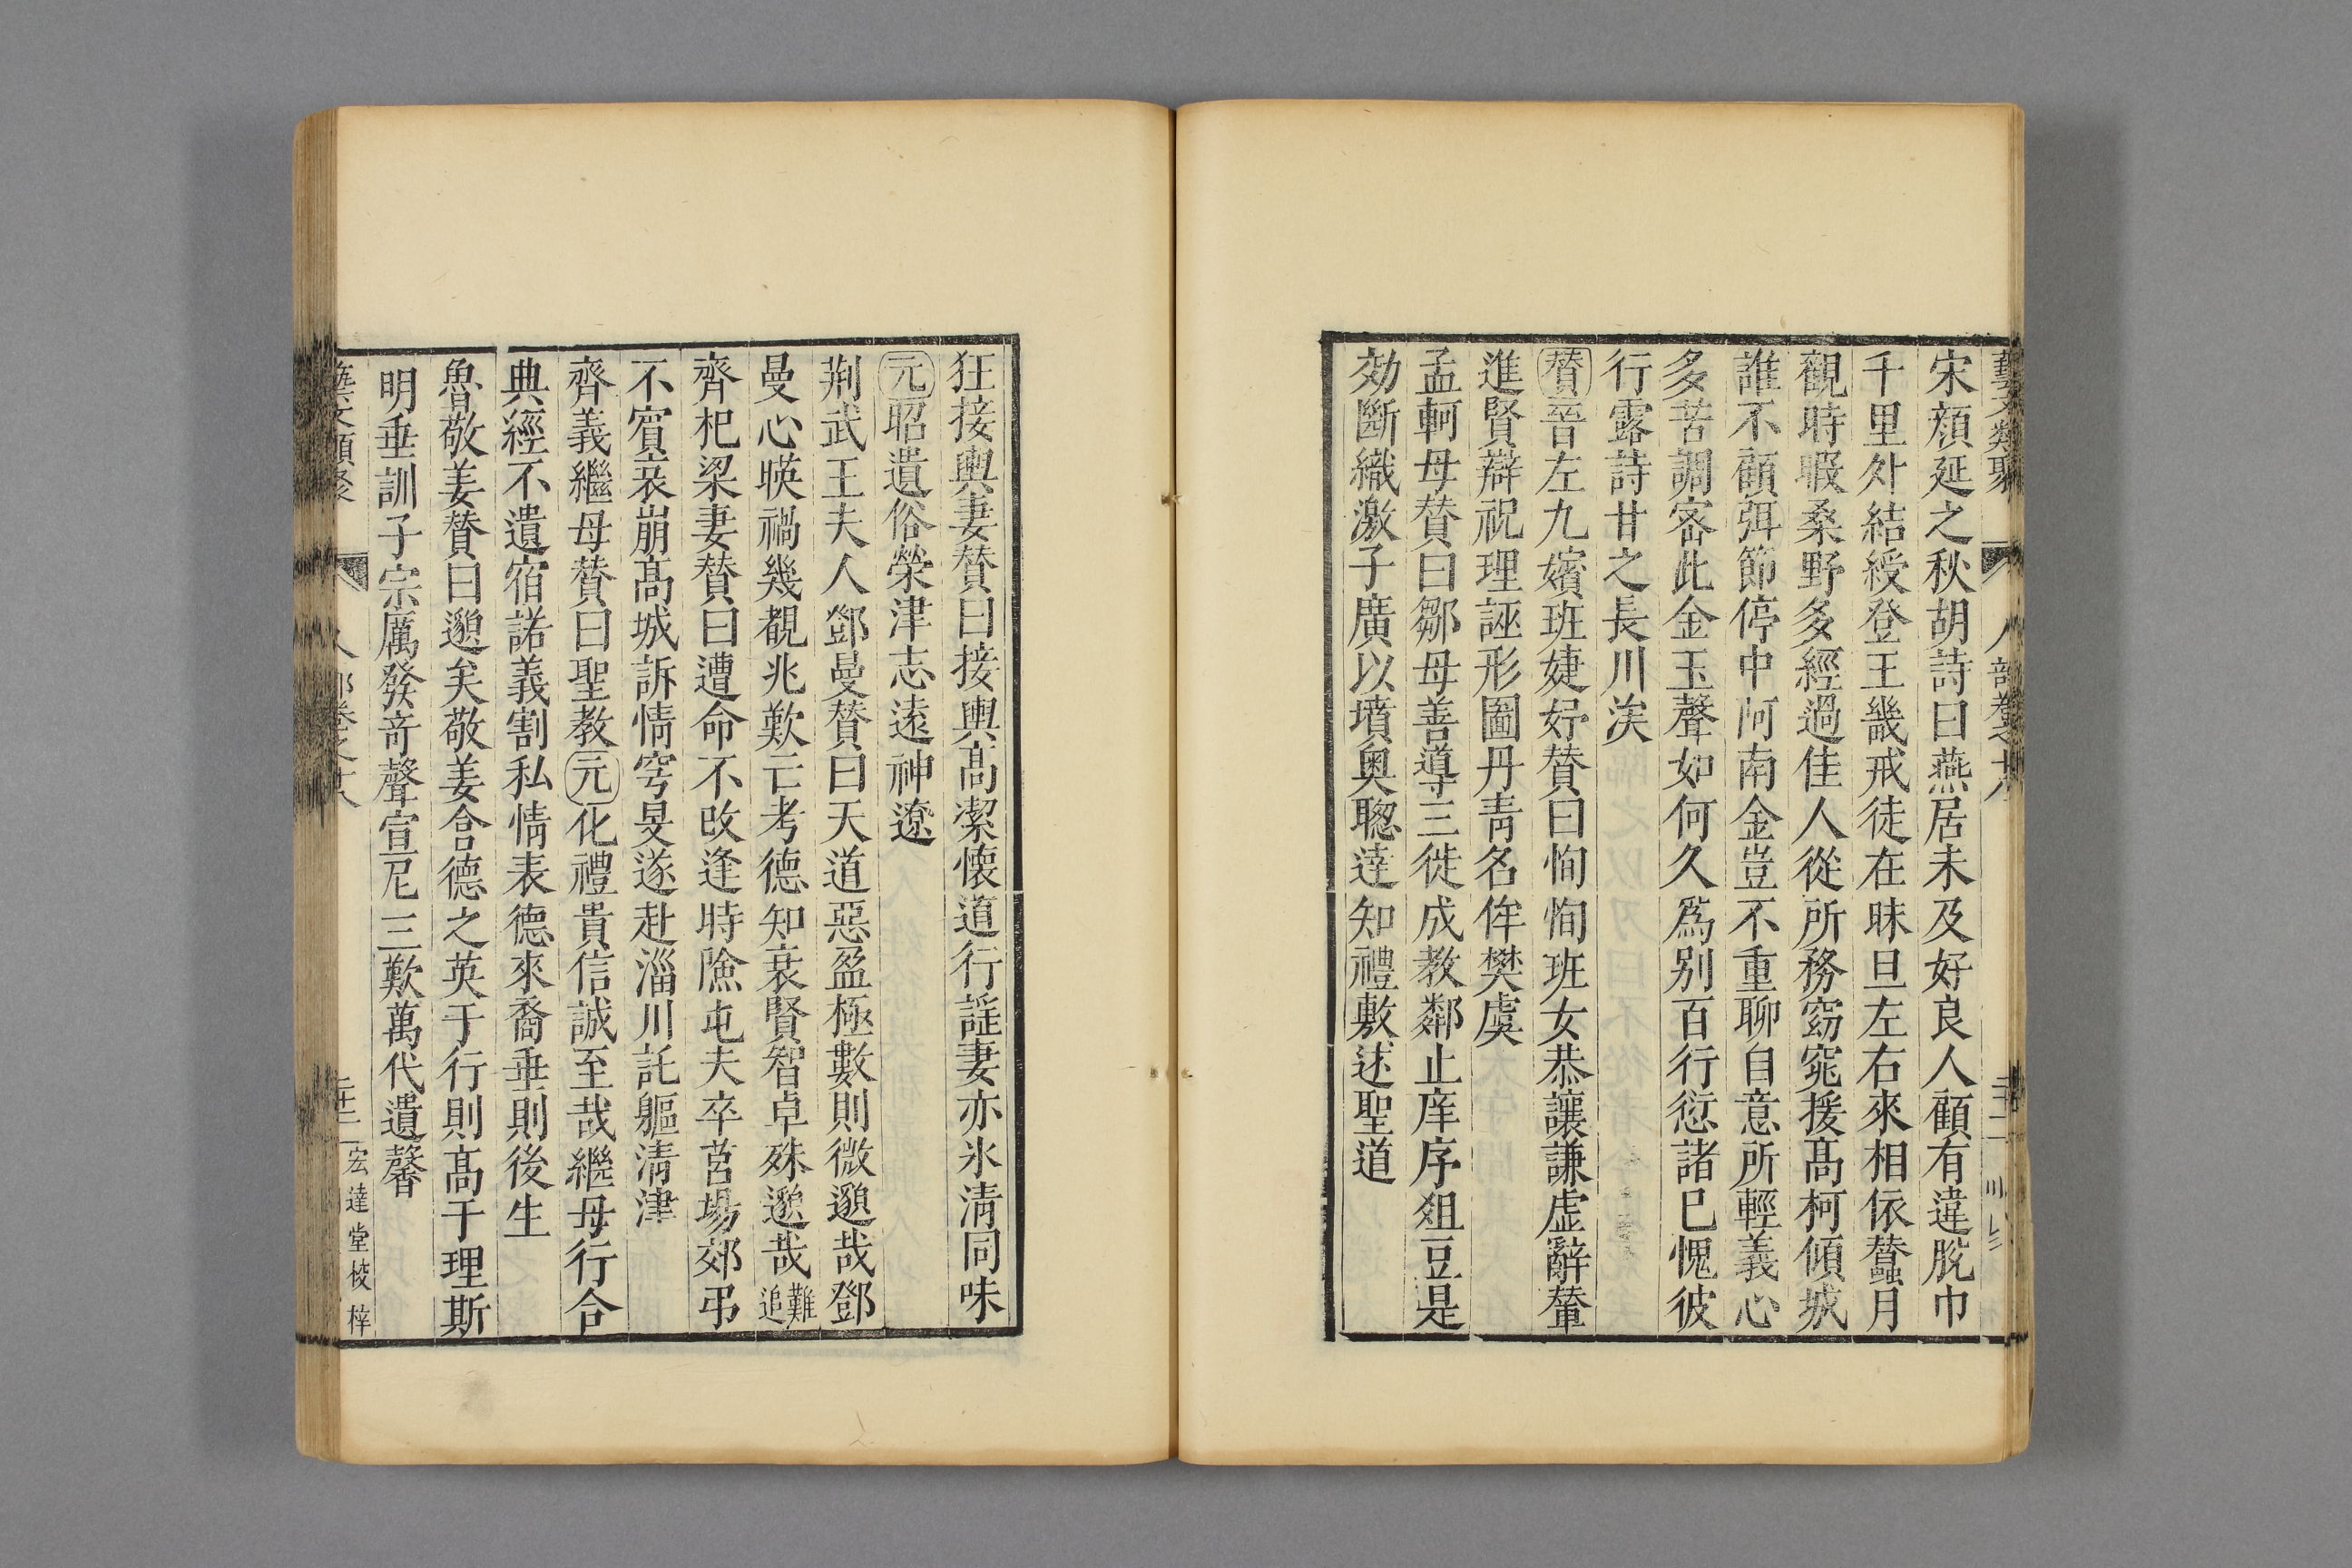 宋顔延之秋胡詩曰燕居未及好良人顧有違脱巾
千里外結綬登王畿戒徒在昧旦左右來相依蠶月
觀時暇桑野多經過佳人從所務窈窕援髙柯傾城
誰不顧弭節停中阿南金豈不重聊自意所輕義心
多苦調宻此金玉聲如何久爲别百行愆諸巳愧彼
行露詩甘之長川涘
賛晉左九嬪班婕妤賛曰恂恂班女恭讓謙虚辭輦
進賢辯祝理誣形圖丹青名侔樊虞
孟軻母賛曰鄒母善導三徙成教鄰止庠序爼豆是
効斷織激子廣以墳奥聦達知禮敷述聖道
狂接輿妻賛曰接輿髙潔懐道行謡妻亦氷清同味
元昭遺俗榮津志逺神遼
荆武王夫人鄧曼賛曰天道惡盈極數則微邈哉鄧
曼心暎禍幾覩兆歎亡考德知衰賢智卓殊邈哉難追
齊杞梁妻賛曰遭命不改逢時險屯夫卒莒場郊弔
不賔哀崩髙城訴情穹旻遂赴淄川託軀清津
齊義繼母賛曰聖教元化禮貴信誠至哉繼母行合
典經不遺宿諾義割私情表德來裔垂則後生
魯敬姜賛曰邈矣敬姜含德之英于行則髙于理斯
明垂訓子宗厲發竒聲宣尼三歎萬代遺馨
宏達堂校梓